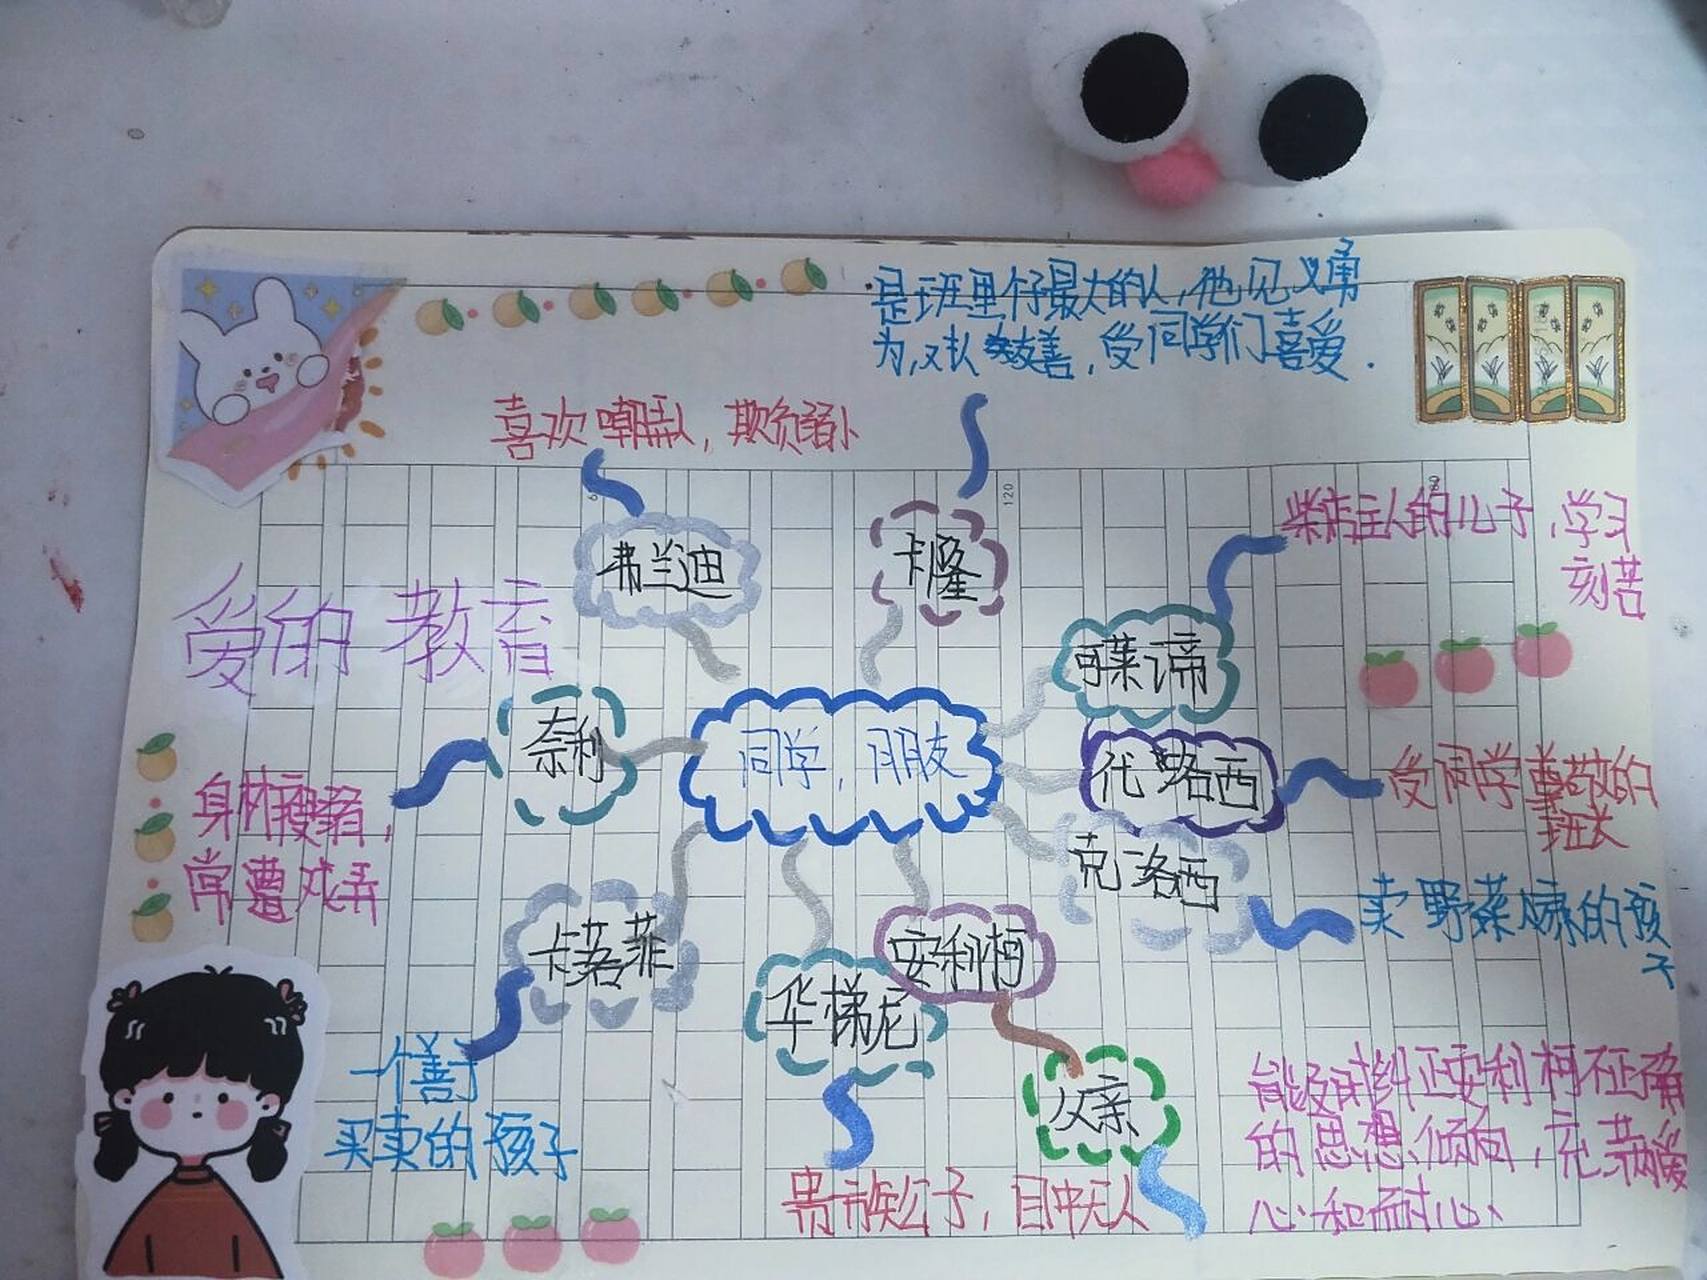 是班里仔最大的人,他见义勇
为,对人友善,受同学们喜爱.
喜欢嘲弄人,欺负弱小
60
120
180
柴店主人的儿子,学习
刻苦
弗兰迪
卡隆
爱的教育
可莱谛
奈利
同学,朋友
代洛西
受同学尊敬的
班长
身材瘦弱,
常遭戏弄
克洛西
卖野菜嫁的孩
子
卡落菲
安利柯
华梯尼
一个善于
买卖的孩子
父亲
能及时纠正安利柯不正确
的思想倾向,充满爱
心和耐心、
贵族公子,目中无人